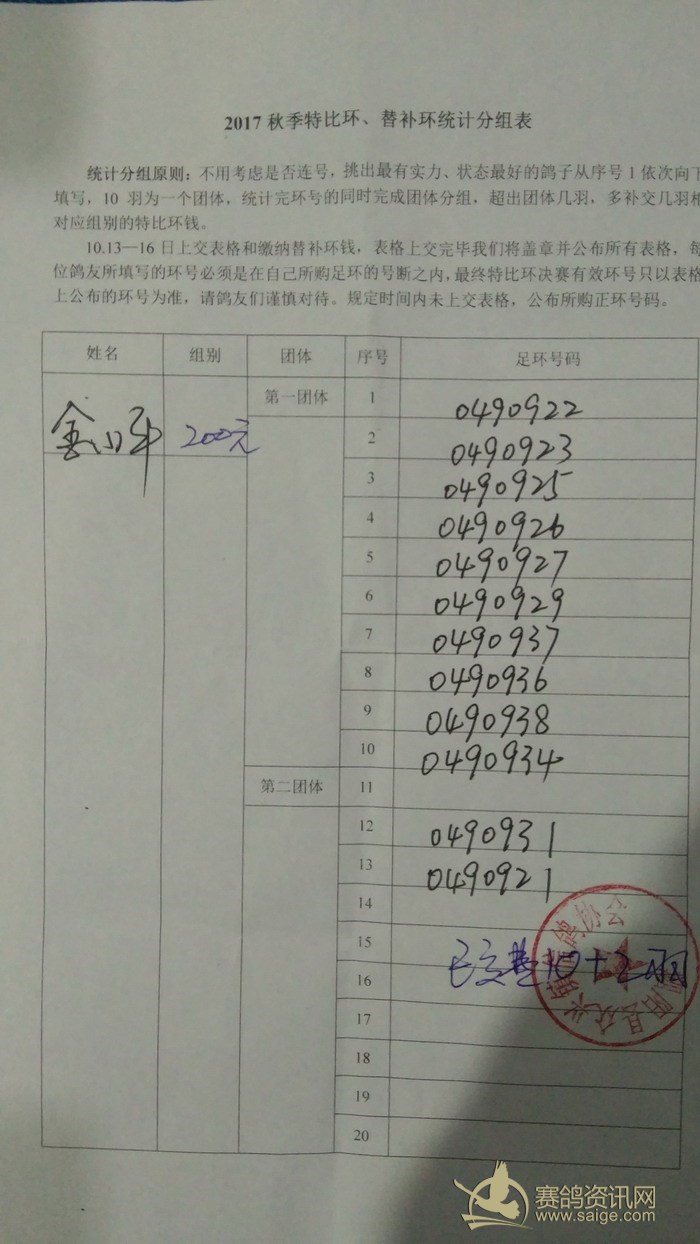 2017 秋季特比环、替补环统计分组表
统计分组原则：不用考虑是否连号，挑出最有实力、状态最好的鸽子从序号 1 依次向下
填写，10 羽为一个团体，统计完环号的同时完成团体分组，超出团体几羽，多补交几羽相
对应组别的特比环钱。
10.13—16 日上交表格和缴纳替补环钱，表格上交完毕我们将盖章并公布所有表格，每
位鸽友所填写的环号必须是在自己所购足环的号断之内，最终特比环决赛有效环号只以表格
上公布的环号为准，请鸽友们谨慎对待。规定时间内未上交表格，公布所购正环号码。
姓名 组别 团体 序号 足环号码
金小平 200元 第一团体 1 0490922
2 0490923
3 0490925
4 0490926
5 0490927
6 0490929
7 0490937
8 0490936
9 0490938
10 0490934
第二团体 11
12 0490931
13 0490921
14
15
已交 10+2羽
16
17
18
19
20
鸽协会
赛鸽资讯网
www.saige.com